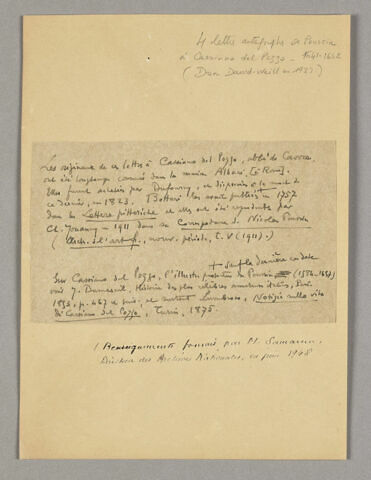 4 lettres autographes de Poussin
à Cassiano del Pozzo - 1641-1642
(Don David-Weill en 1923)
Les originaux de ces lettres à Cassiano del Pozzo, abbé de Cavore,
ont été longtemps conservés dans la maison Albani, [à Rome].
Elles furent achetées par Dufourny, et dispersées à la mort de
ce dernier, en 1823. Bottari les avait publiées en 1757
dans les Lettere pittoriche et elles ont été reproduites par
Ch. Jouanny en 1911 dans sa Correspondance de Nicolas Poussin
(Arch. de l'art fr., nouv. période, t. V (1911).)
+ sauf la dernière en date
Sur Cassiano del Pozzo, l'illustre protecteur de Poussin (1584-1657)
voir J. Dumesnil, Histoire des plus célèbres amateurs italiens, Paris
1853, p. 467 et suiv. et surtout Lumbroso, Notizie sulla vita
di Cassiano del Pozzo, Turin, 1875.
(Renseignements fournis par M. Samaran,
Directeur des Archives Nationales, en juin 1948